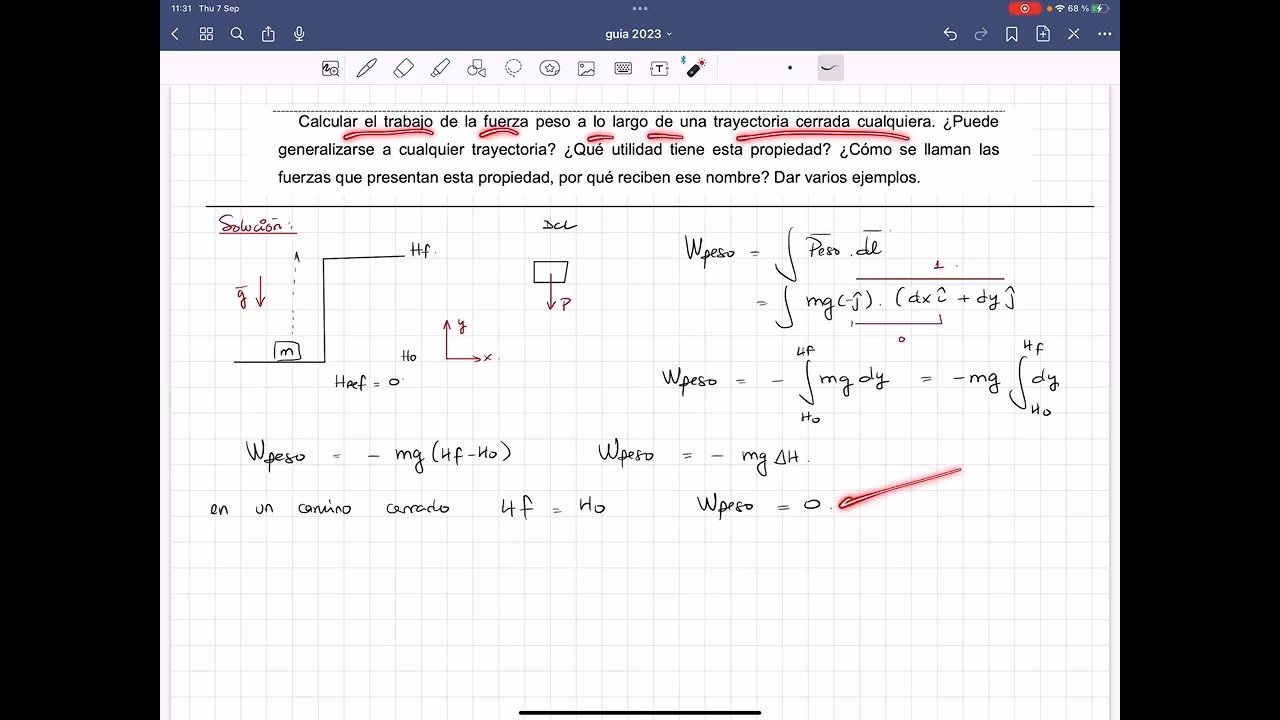 11:31 Thu 7 Sep
68 %
guia 2023
Calcular el trabajo de la fuerza peso a lo largo de una trayectoria cerrada cualquiera. ¿Puede
generalizarse a cualquier trayectoria? ¿Qué utilidad tiene esta propiedad? ¿Cómo se llaman las
fuerzas que presentan esta propiedad, por qué reciben ese nombre? Dar varios ejemplos.
Solución:
DCL
Hf
g
P
m
y
x
Ho
Href = 0
Wpeso = ∫ Peso . dl
1
= ∫ mg(-ĵ) . (dx î + dy ĵ
0
Wpeso = - ∫ Ho Hf mg dy = -mg ∫ Ho Hf dy
Wpeso = - mg (Hf-Ho)
Wpeso = - mg ΔH.
en un camino cerrado Hf = Ho Wpeso = 0.